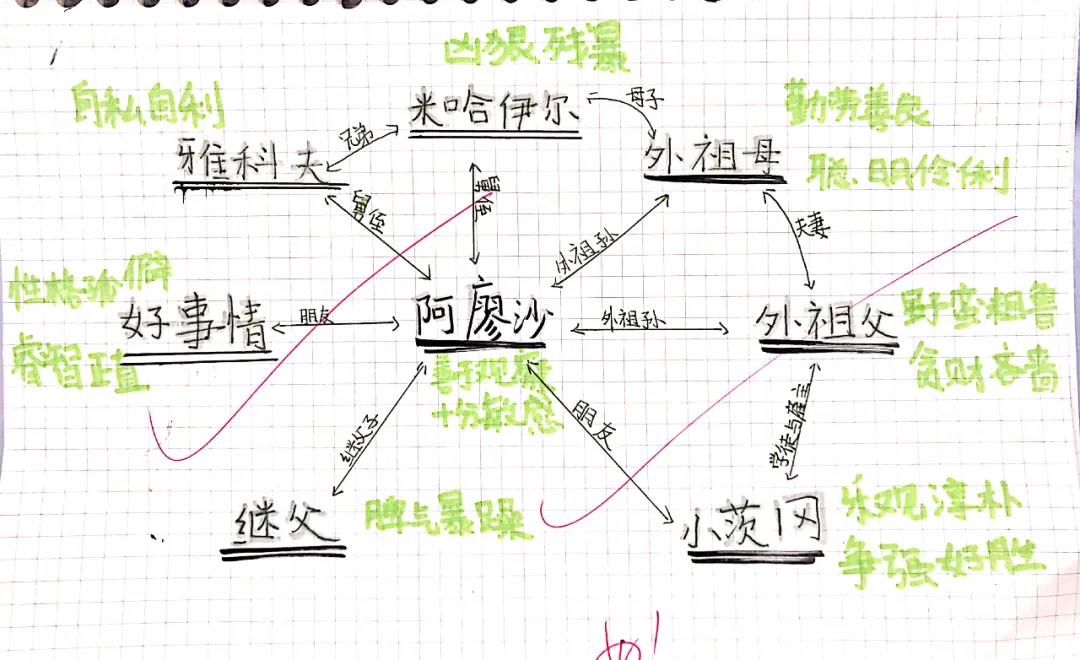 凶狠残暴
自私自利
米哈伊尔
母子
勤劳善良
兄弟
雅科夫
外祖母
聪明伶俐
舅侄
舅侄
外祖孙
夫妻
性格
好事情
朋友
阿廖沙
外祖孙
外祖父
野蛮粗鲁
睿智正直
善于观察
贪财吝啬
十分敏感
继父子
朋友
学徒与雇主
继父
脾气暴躁
小茨冈
乐观淳朴
争强好胜